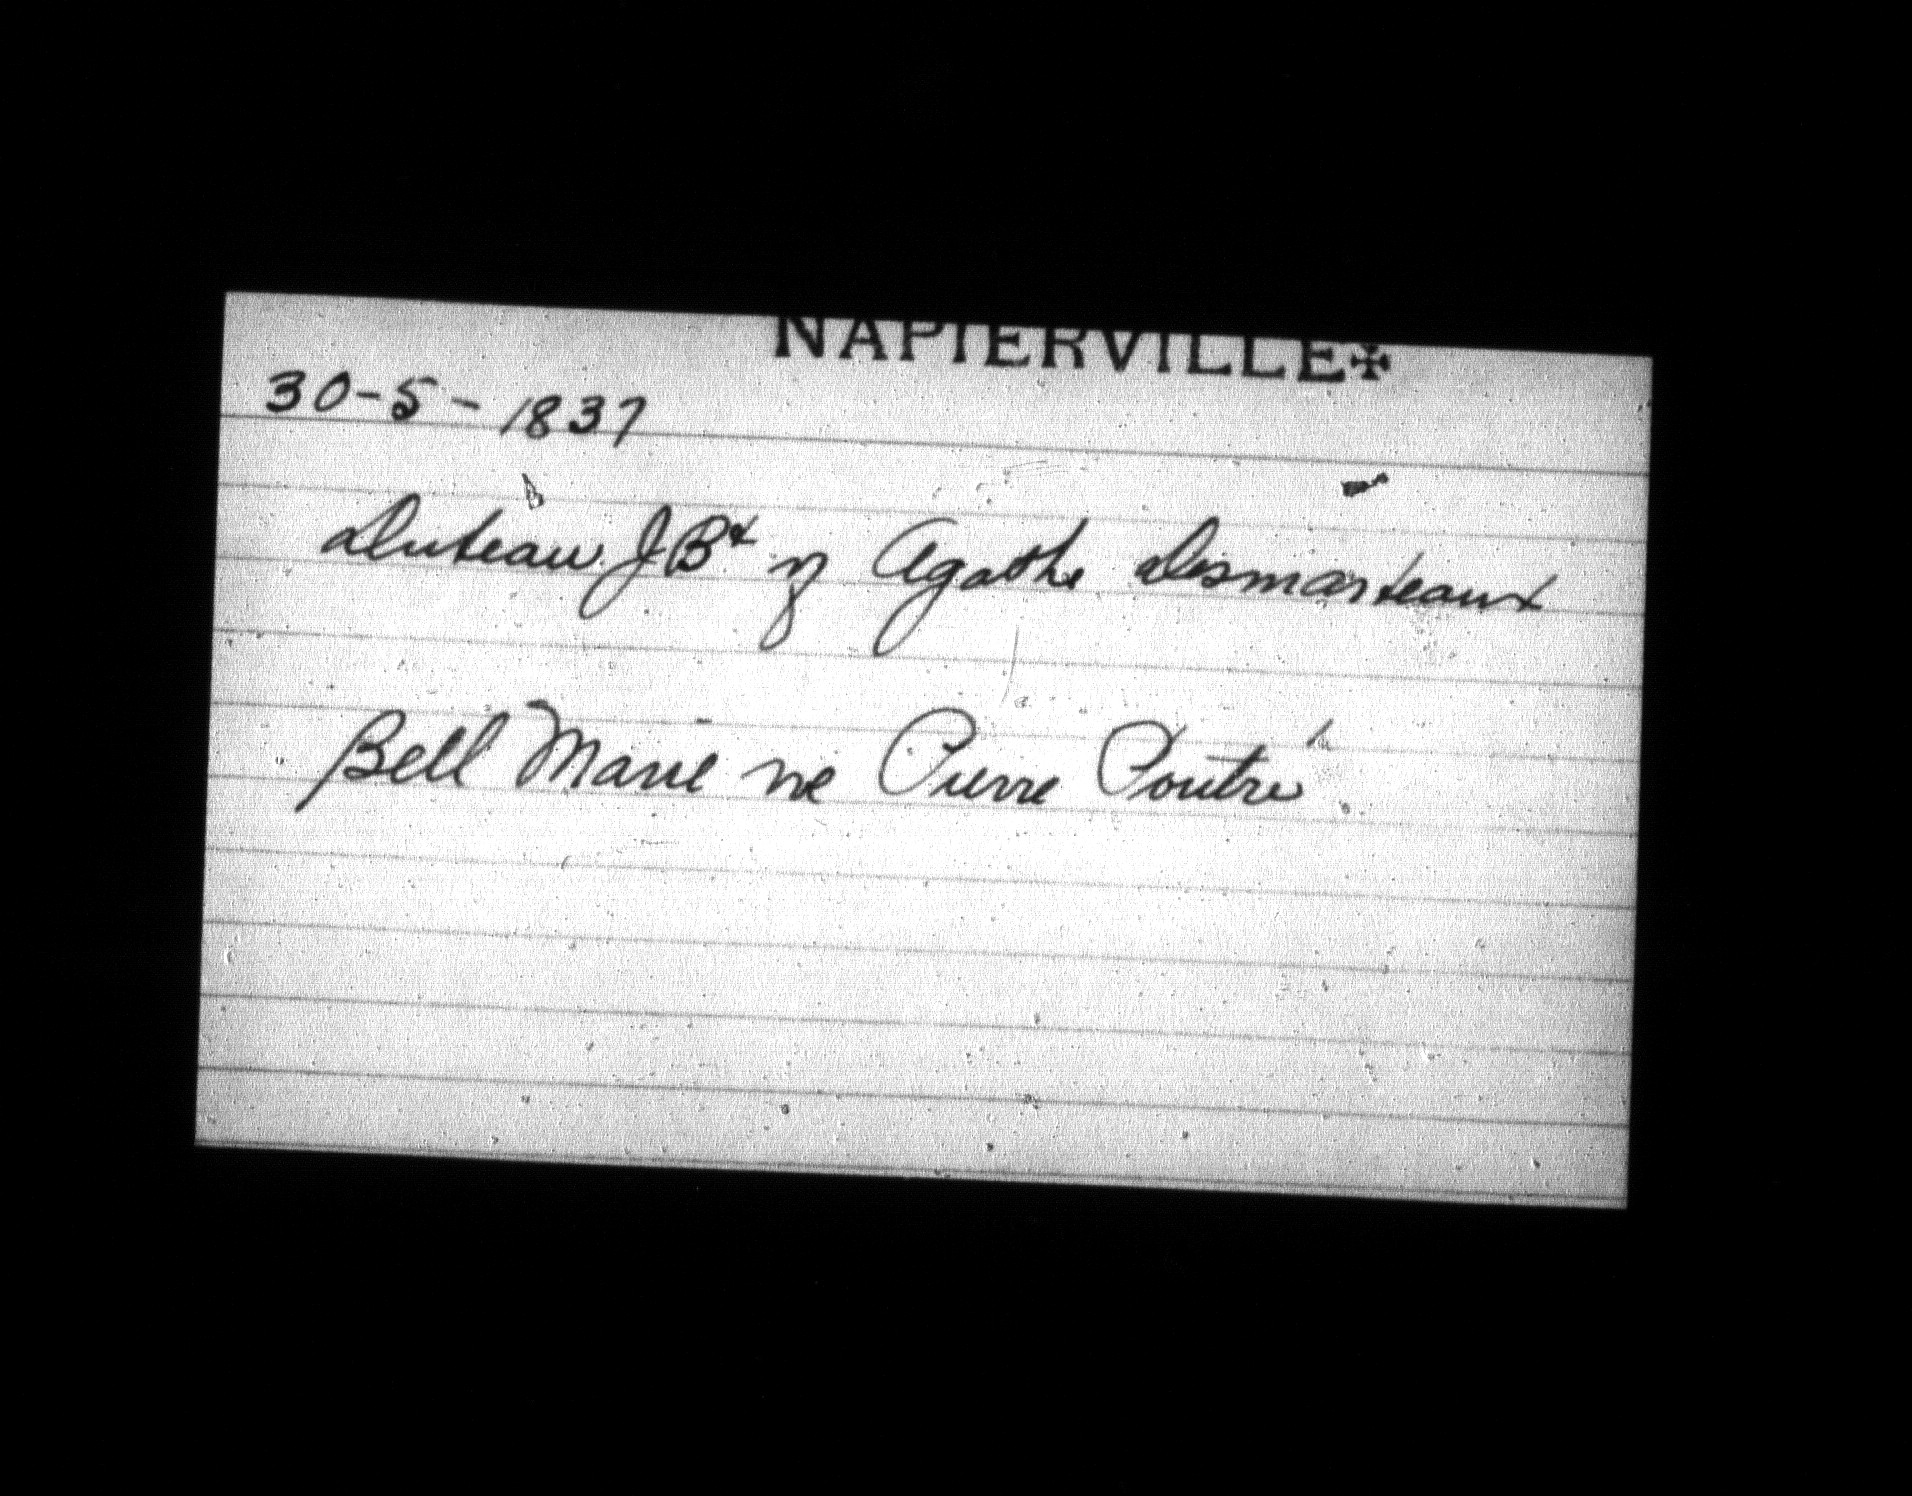 NAPIERVILLE✠
30-5-1837
Duteau J Bt vf Agathe Desmarteaux
Bell Marie ve Pierre Poutré